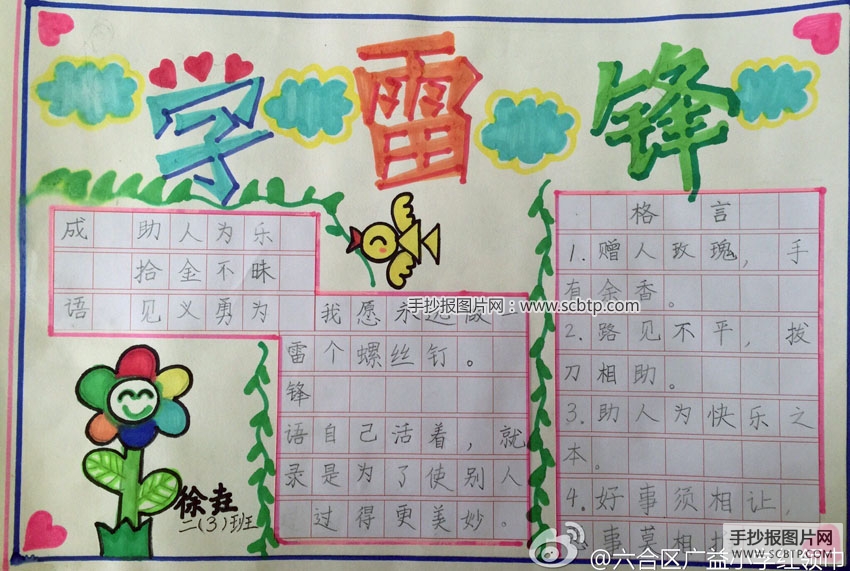 学雷锋
成 助人为乐
拾金不昧
语 见义勇为
我愿永远做一
雷个螺丝钉。
锋
语自己活着，就
录是为了使别人
过得更美妙。
格言
1.赠人玫瑰，手
有余香。
2.路见不平，拔
刀相助。
3.助人为快乐之
本。
4.好事须相让，
事莫相
徐垚
二(3)班
手抄报图片网：www.scbtp.com
手抄报图片网
WWW.SCBTP.COM
@六合区广益小学红领巾